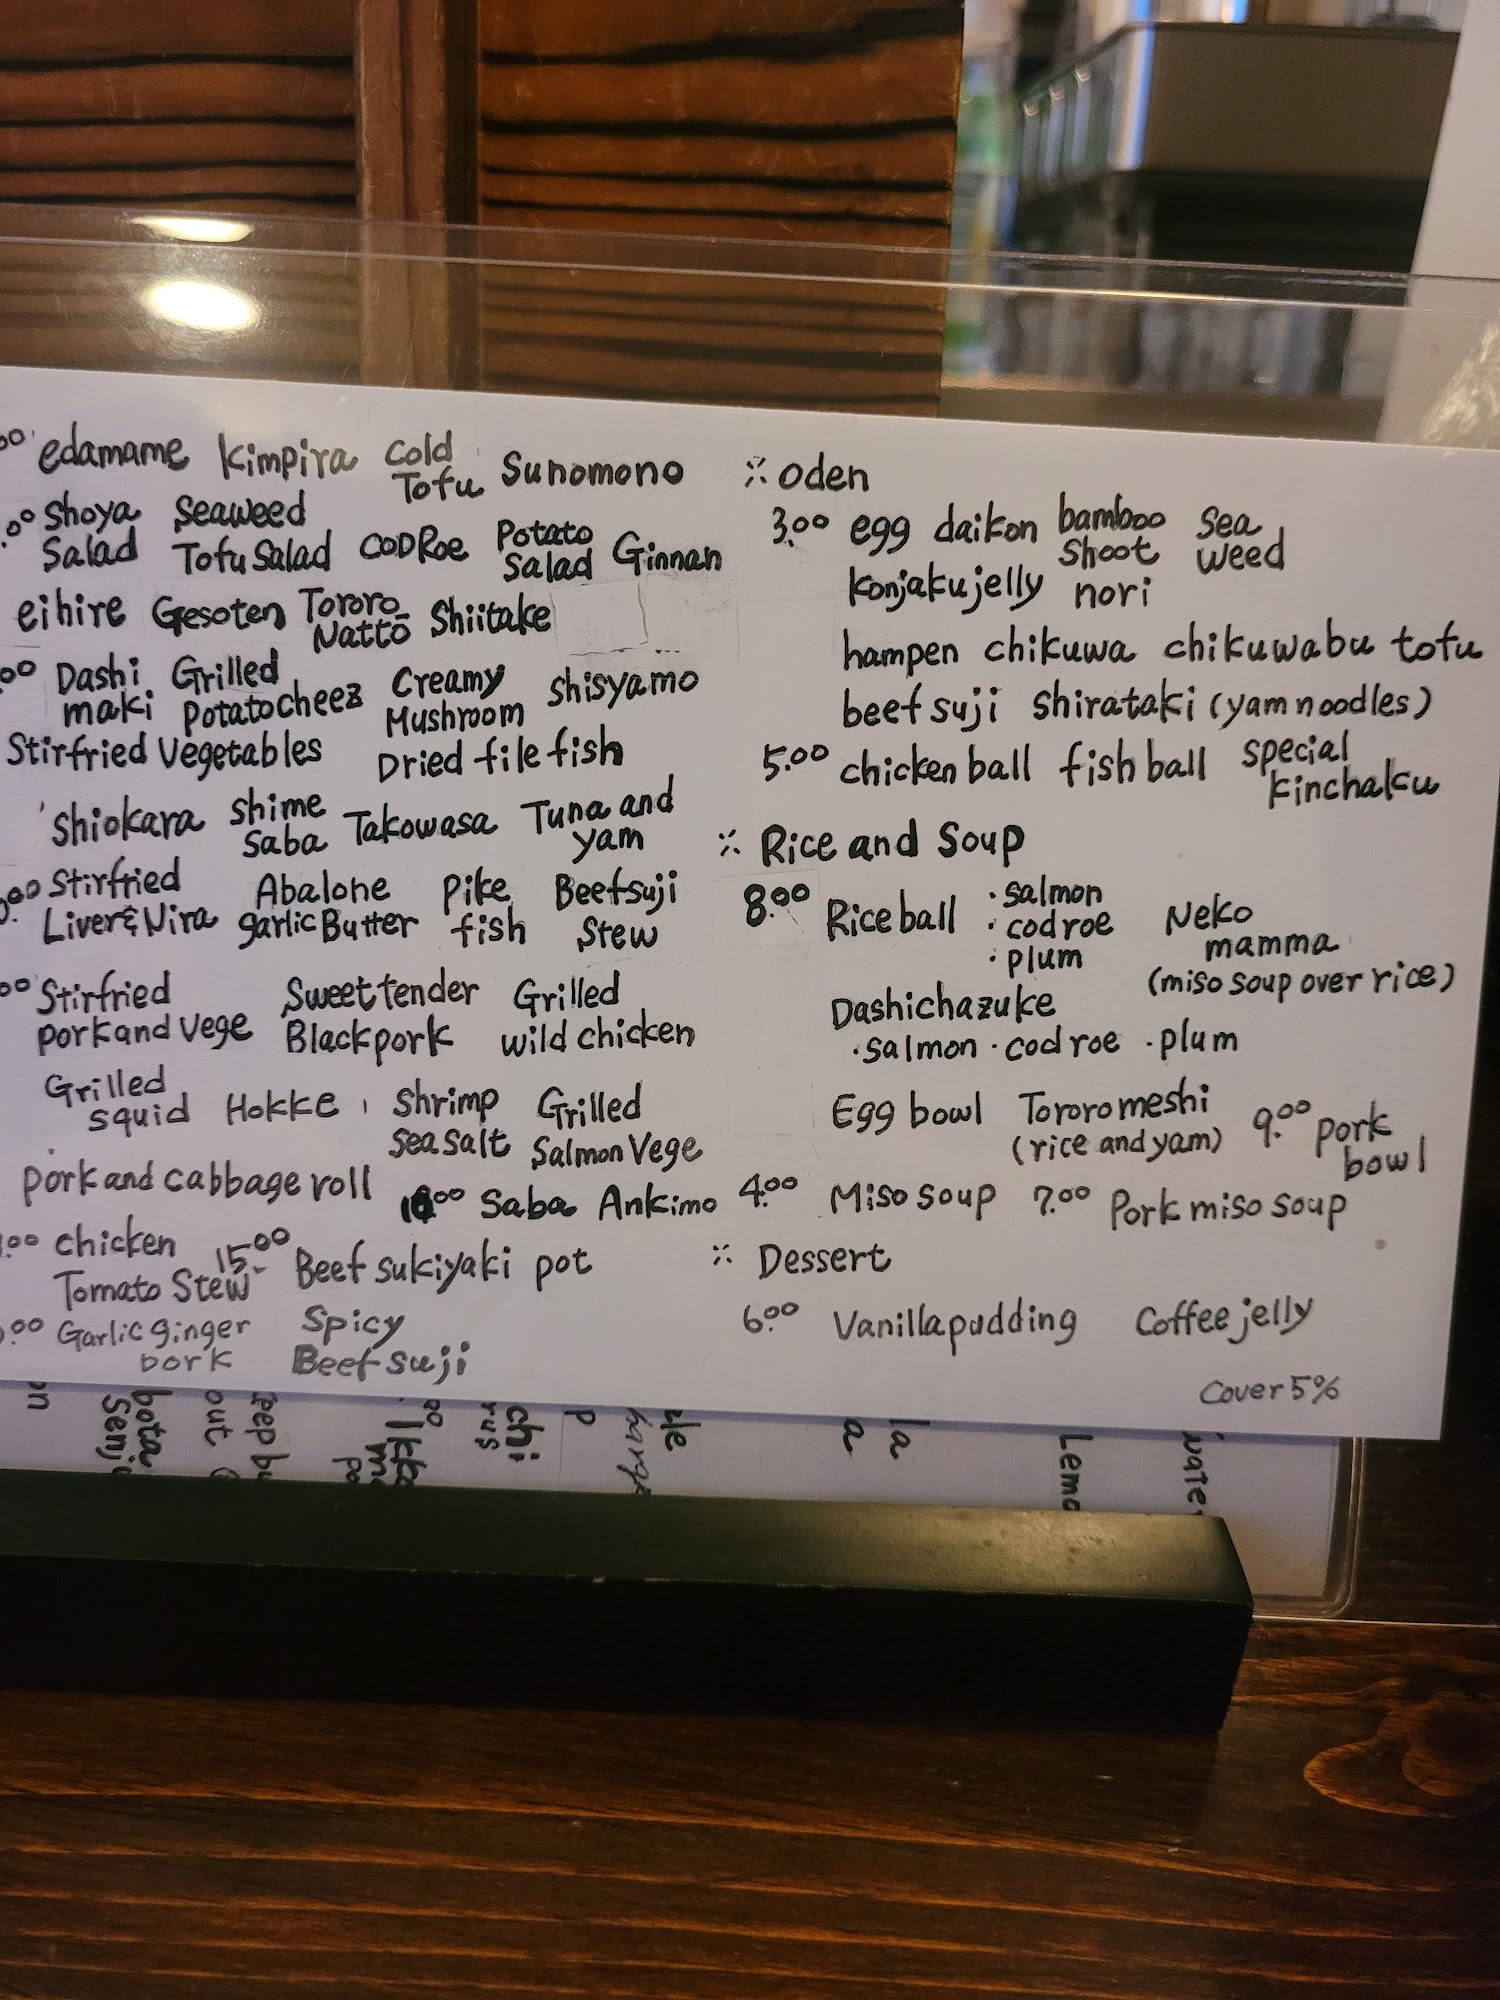 edamame Kimpira Cold Tofu Sunomono
Shoya Salad Seaweed Tofu Salad COD Roe Potato Salad Ginnan
eihire Gesoten Tororo Nattō Shiitake
Dashi maki Grilled Potato cheez Creamy Mushroom Shisyamo
Stirfried Vegetables Dried file fish
Shiokara Shime Saba Takowasa Tuna and yam
Stirfried Liver & Nira Abalone garlic Butter Pike fish Beef suji Stew
Stirfried pork and Vege Sweet tender Black pork Grilled wild chicken
Grilled squid Hokke Shrimp sea salt Grilled Salmon Vege
pork and cabbage roll Saba Ankimo
chicken Tomato Stew 15.00 Beef sukiyaki pot
Garlic ginger pork Spicy Beef suji
Oden
3.00 egg daikon bamboo shoot sea weed
Konjaku jelly nori
hampen chikuwa chikuwabu tofu
beef suji shirataki (yam noodles)
5.00 chicken ball fish ball special kinchaku
Rice and Soup
8.00 Rice ball ・salmon ・cod roe ・plum Neko mamma (miso soup over rice)
Dashichazuke
・salmon ・cod roe ・plum
Egg bowl Tororo meshi (rice and yam) 9.00 pork bowl
4.00 Miso soup 7.00 Pork miso soup
Dessert
6.00 Vanilla pudding Coffee jelly
Cover 5%